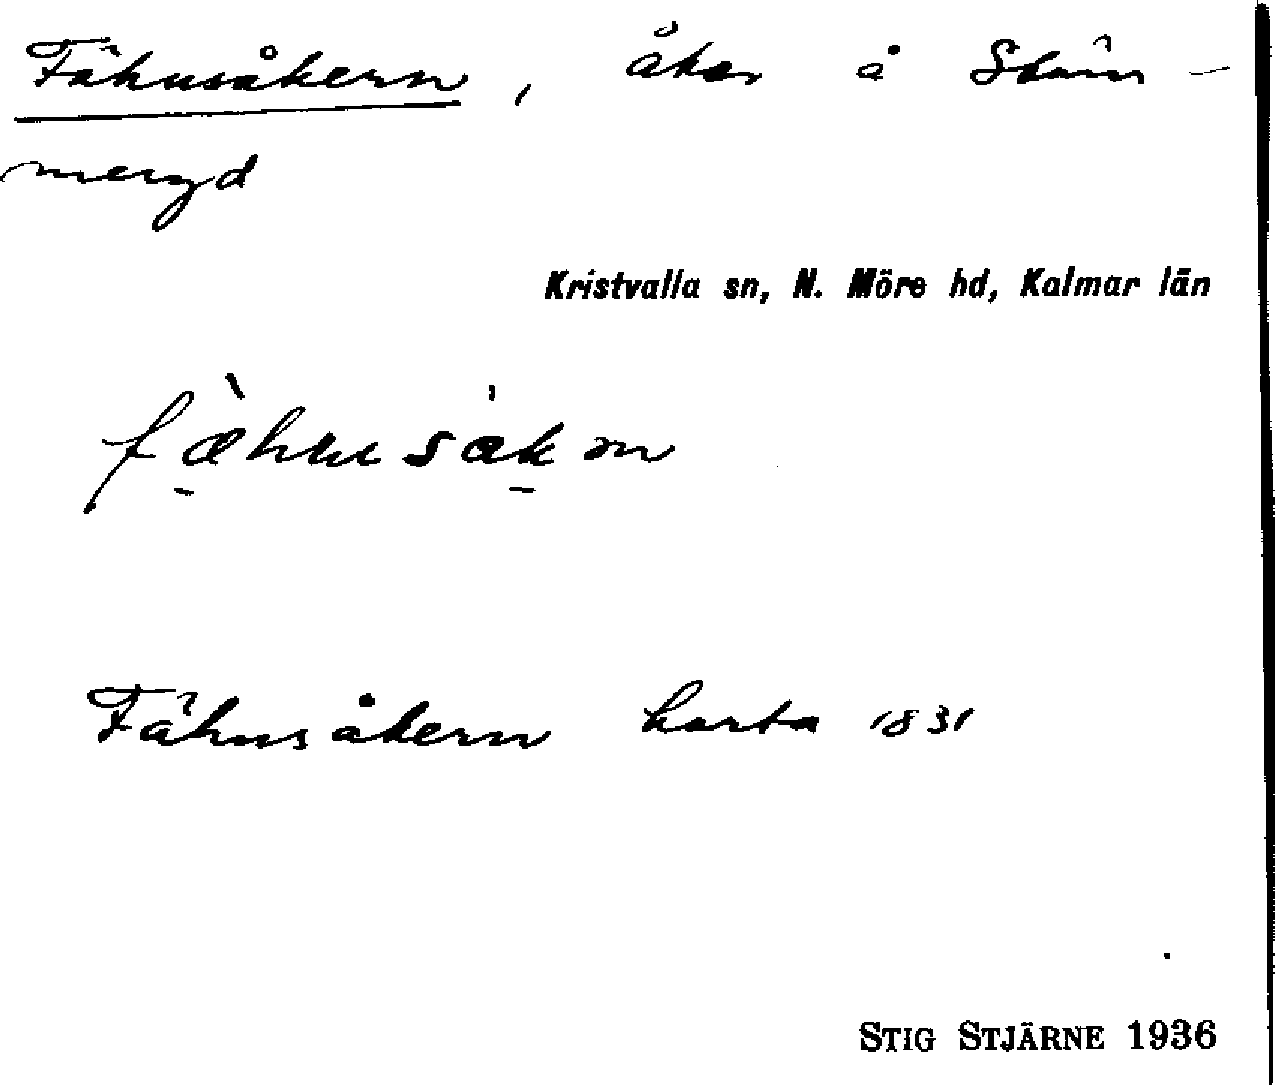 Fähusåkern, åker å Stäm-
meryd
Kristvalla sn, N. Möre hd, Kalmar län
fæ̀husåkən
Fähusåkern karta 1831
STIG STJÄRNE 1936